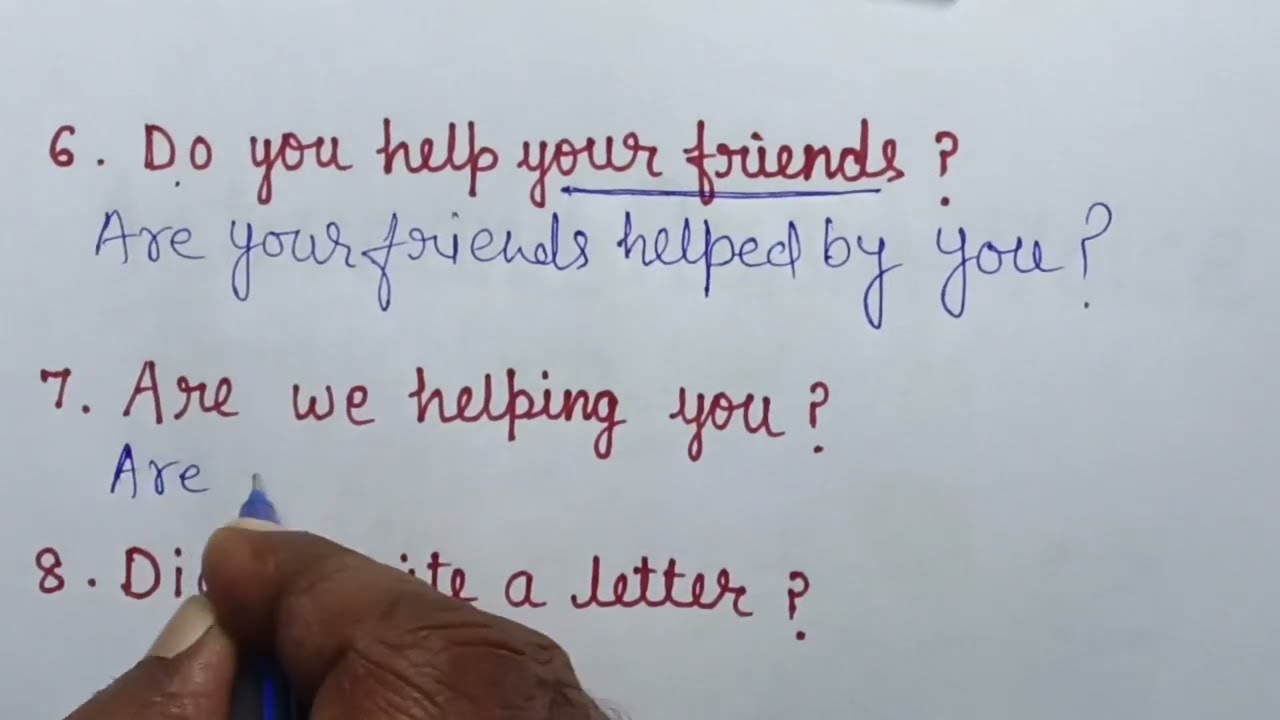 6. Do you help your friends?
Are your friends helped by you?
7. Are we helping you?
Are
8. a letter?